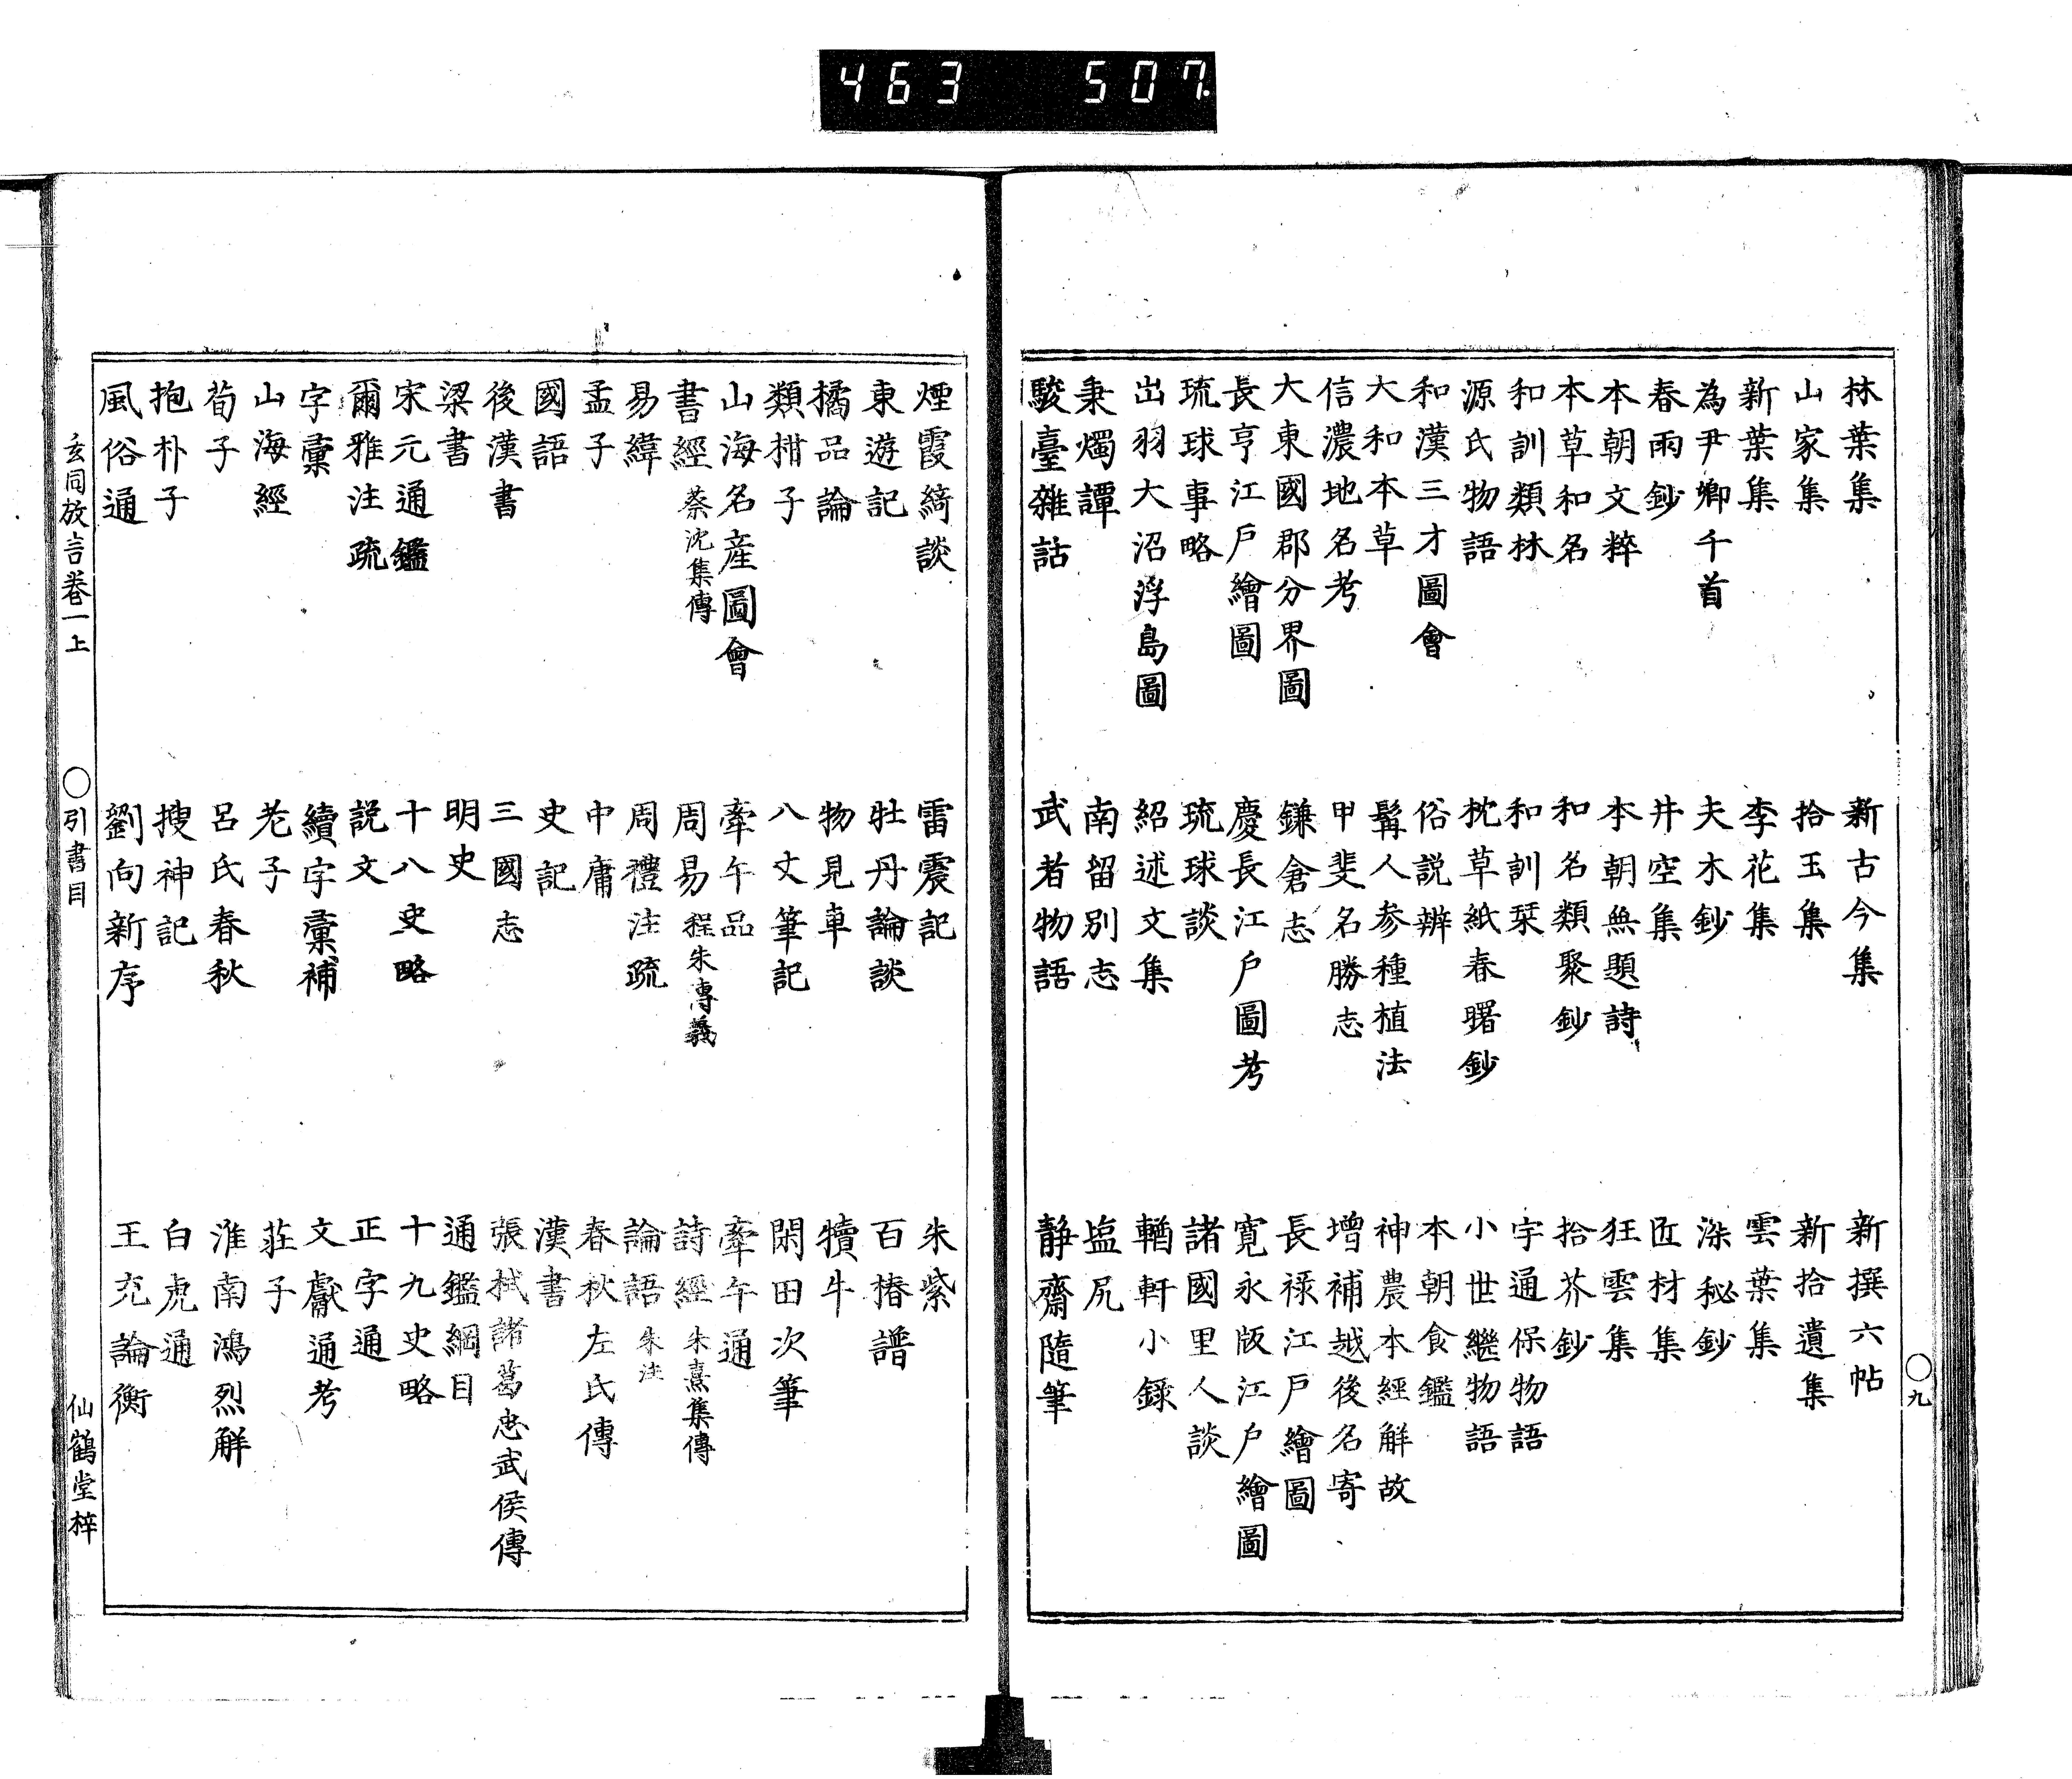 463 507.
林葉集 新古今集 新撰六帖
山家集 拾玉集 新拾遺集
新葉集 李花集 雲葉集
為尹卿千首 夫木鈔 深秘鈔
春雨鈔 井空集 匠材集
本朝文粹 本朝無題詩 狂雲集
本草和名 和名類聚鈔 拾芥鈔
和訓類林 和訓栞 宇通保物語
源氏物語 枕草紙春曙鈔 小世繼物語
和漢三才圖會 俗説辨 本朝食鑑
大和本草 髯人参種植法 神農本經解故
信濃地名考 甲斐名勝志 增補越後名寄
大東國郡分界圖 鎌倉志 長禄江戸繪圖
長亨江戸繪圖 慶長江戸圖考 寛永版江戸繪圖
琉球事略 琉球談 諸國里人談
出羽大沼浮島圖 紹述文集 輶軒小録
秉燭譚 南留別志 塩尻
駿臺雜話 武者物語 靜齋隨筆
〇九
煙霞綺談 雷震記 朱紫
東遊記 牡丹論談 百椿譜
橘品論 物見車 犢牛
類柑子 八丈筆記 閑田次筆
山海名産圖會 牽午品 牽午通
書經 蔡沈集傳 周易 程朱傳義 詩經 朱熹集傳
易緯 周禮注疏 論語 朱注
孟子 中庸 春秋左氏傳
國語 史記 漢書
後漢書 三國志 張栻諸葛忠武侯傳
梁書 明史 通鑑綱目
宋元通鑑 十八史略 十九史略
爾雅注疏 説文 正字通
字彙 續字彙補 文獻通考
山海經 老子 莊子
荀子 呂氏春秋 淮南鴻烈解
抱朴子 搜神記 白虎通
風俗通 劉向新序 王充論衡
玄同放言巻一上 〇引書目 仙鶴堂梓